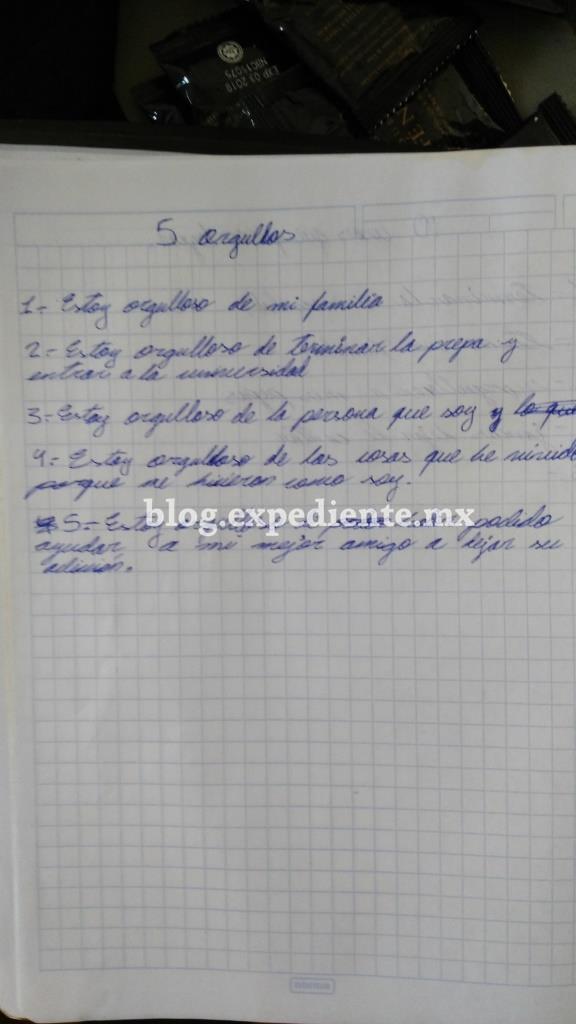 HALAL
EXP 03 2018
NBC11075
5 orgullos
1- Estoy orgulloso de mi familia
2- Estoy orgulloso de terminar la prepa y
entrar a la universidad
3- Estoy orgulloso de la persona que soy y lo que
4- Estoy orgulloso de las cosas que he vivido
porque me hicieron como soy.
5- Estoy podido
ayudar a mi mejor amigo a dejar su
adicion.
blog.expediente.mx
norma